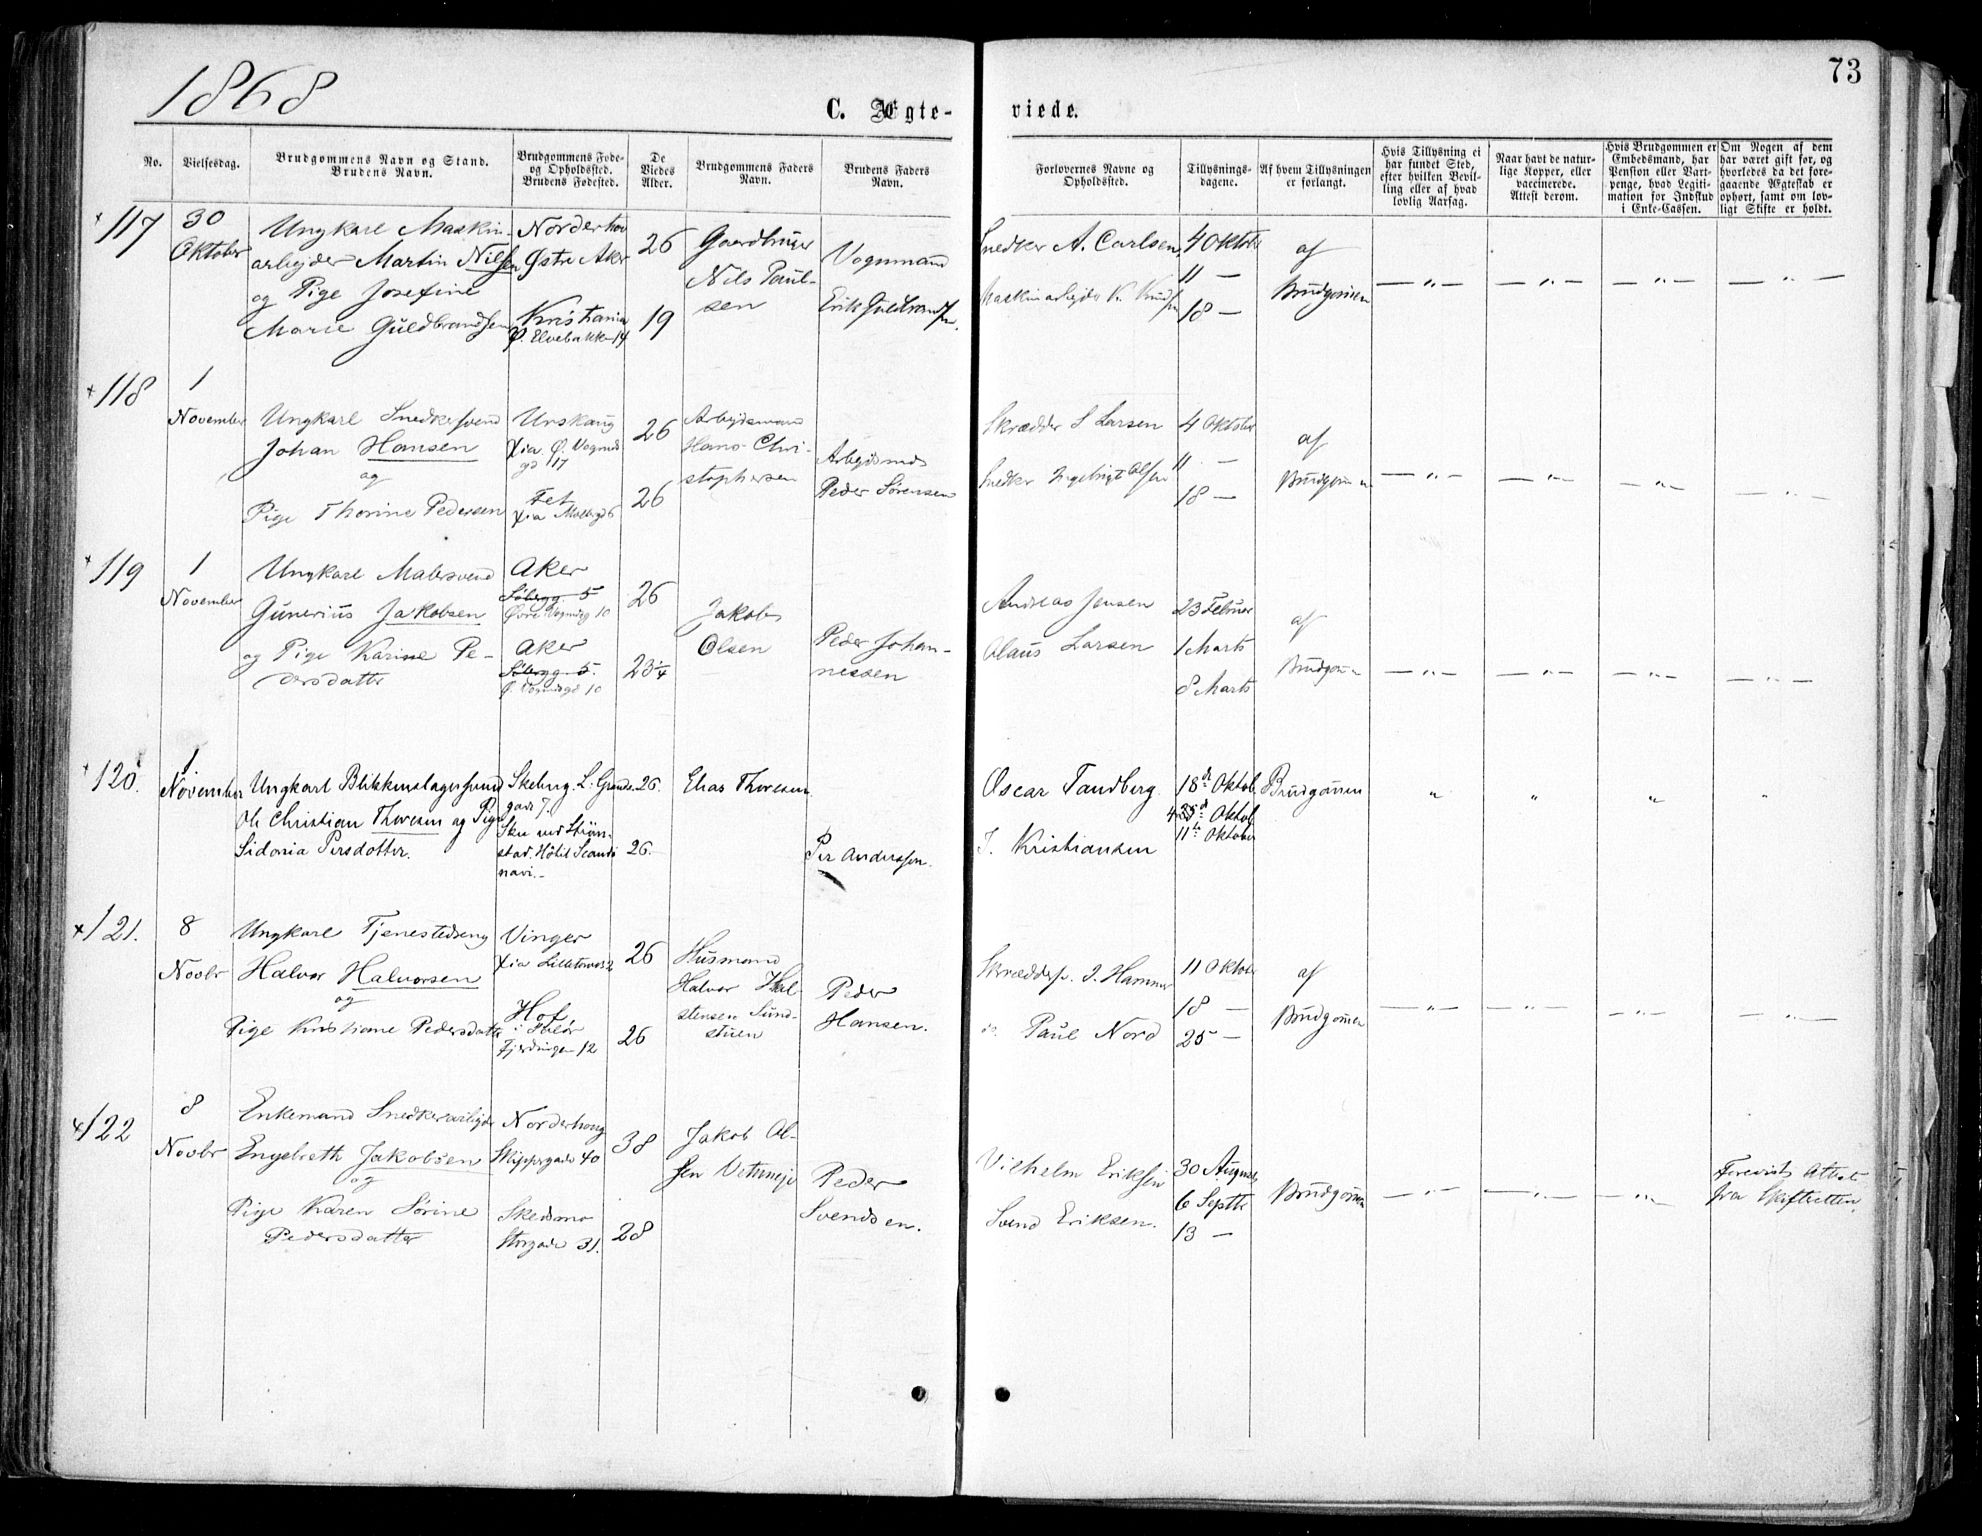 1868
73
C. Ægte-
viede.
No.
Vielsesdag.
Brudgommens Navn og Stand.
Brudens Navn.
Brudgommens Føde-
og Opholdssted.
Brudens Fødested.
De
Viedes
Alder.
Brudgommens Faders
Navn.
Brudens Faders
Navn.
Forlovernes Navne og
Opholdssted.
Tillysnings-
dagene.
Af hvem Tillysningen
er forlangt.
Hvis Tillysning ei
har fundet Sted,
efter hvilken Bevil-
ling eller af hvad
lovlig Aarsag.
Naar havt de natur-
lige Kopper, eller
vaccinerede.
Attest derom.
Hvis Brudgommen er
Embedsmand, har
Pension eller Vart-
penge, hvad Legiti-
mation for Indskud
i Enke-Cassen.
Om Nogen af dem
har været gift før, og
hvorledes da det fore-
gaaende Ægteskab er
ophørt, samt om lov-
ligt Skifte er holdt.
117
30
Oktober
Ungkarl Maskin-
arbejder Martin Nilsen
og Pige Josefine
Marie Guldbrandsen
Norderhov
Østre Aker
Kristiania
Ø. Elvebakke 14
26
19
Gaardbruger
Nils Paul-
sen
Vognmand
Erik Guldbrandsen.
Snedker A. Carlsen
Maskinarbejder K. Knudsen
4 Oktober
11 —
18 —
af
Brudgommen
— „ —
— „ —
— „ —
— „ —
118
1
November
Ungkarl Snedkersvend
Johan Hansen
og
Pige Thorine Pedersen
Urskoug
Xia Ø. Vognmds
gd 17
Fet
Xia Møllergd 6
26
26
Arbejdsmand
Hans Chri-
stophersen
Arbejdsmd
Peder Sørensen
Skrædder S Larsen
Snedker Ingebrigt Olsen
4 Oktober
11 —
18 —
af
Brudgommen
— „ —
— „ —
— „ —
— „ —
119
1
November
Ungkarl Malersvend
Gunerius Jakobsen
og Pige Karine Pe-
dersdatter
Aker
5
Øvre Vogmdg 10
Aker
5
Ø. Vogmdsgd 10
26
23 ¼
Jakob
Olsen
Peder Johan-
nessen
Andreas Jensen
Olaus Larsen
23 Februar
1 Marts
8 Marts
af
Brudgommen
— „ —
— „ —
— „ —
— „ —
120.
1
November
Ungkarl Blikkenslagersvend
Ole Christian Thoresen og Pige
Sidonia Persdotter.
Skeberg. L. Grænde-
gade 7.
Skee ved Strøm-
stad. Hôtel Scandi
navi.-
26.
26.
Elias Thoresen
Per Anderssen.
Oscar Tandberg.
J. Kristiansen
18de Oktob
25d Oktob
11te Oktober
Brudgommen
„
„
„
„
121.
8
Novbr
Ungkarl Tjenestedreng
Halvor Halvorsen
og
Pige Kristiane Pedersdatter
Vinger
Xia Lilletorvet 2
Hof
i Solør
Fjerdingen 12
26
26
Husmand
Halvor Hal-
stensen Sund-
stuen
Peder
Hansen.
Skræddersv. J. Hammer
do. Paul Nord
11 Oktober
18 —
25 —
af
Brudgommen
— „ —
— „ —
— „ —
— „ —
122
8
Novbr
Enkemand Snedkerarbejder
Engebreth Jakobsen
og
Pige Karen Sørine
Pedersdatter
Norderhoug
Skippergade 40
Skedsmo
Storgade 31.
38
28
Jakob Ol-
sen
Peder
Svendsen.
Vilhelm Eriksen
Svend Eriksen.
30 August
6 Septbr
13 —
Brudgommen
— „ —
— „ —
— „ —
Forevist Attest
fra Skifteretten.